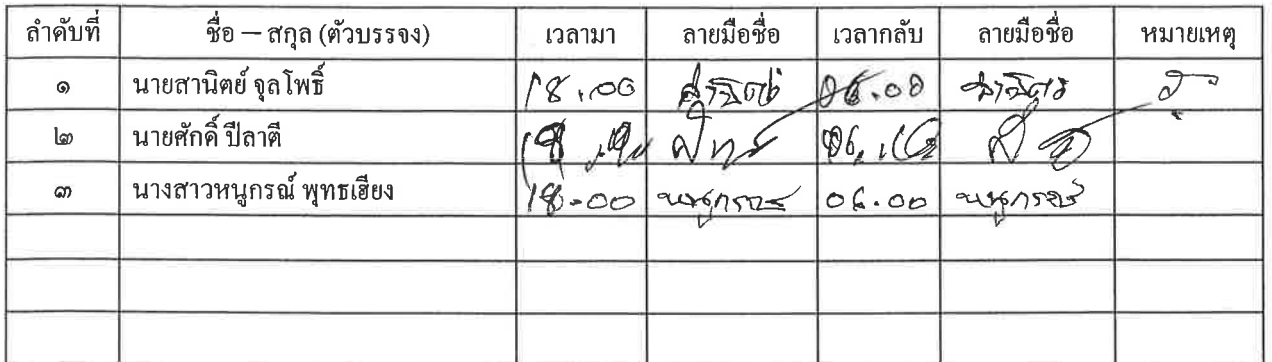 ลำดับที่ ชื่อ – สกุล (ตัวบรรจง) เวลามา ลายมือชื่อ เวลากลับ ลายมือชื่อ หมายเหตุ
๑ นายสานิตย์ จุลโพธิ์ 18.00 สานิตย์ 06.00 สานิตย์
๒ นายศักดิ์ ปีลาตี
๓ นางสาวหนูกรณ์ พุทธเฮียง 18.00 หนูกรณ์ 06.00 หนูกรณ์